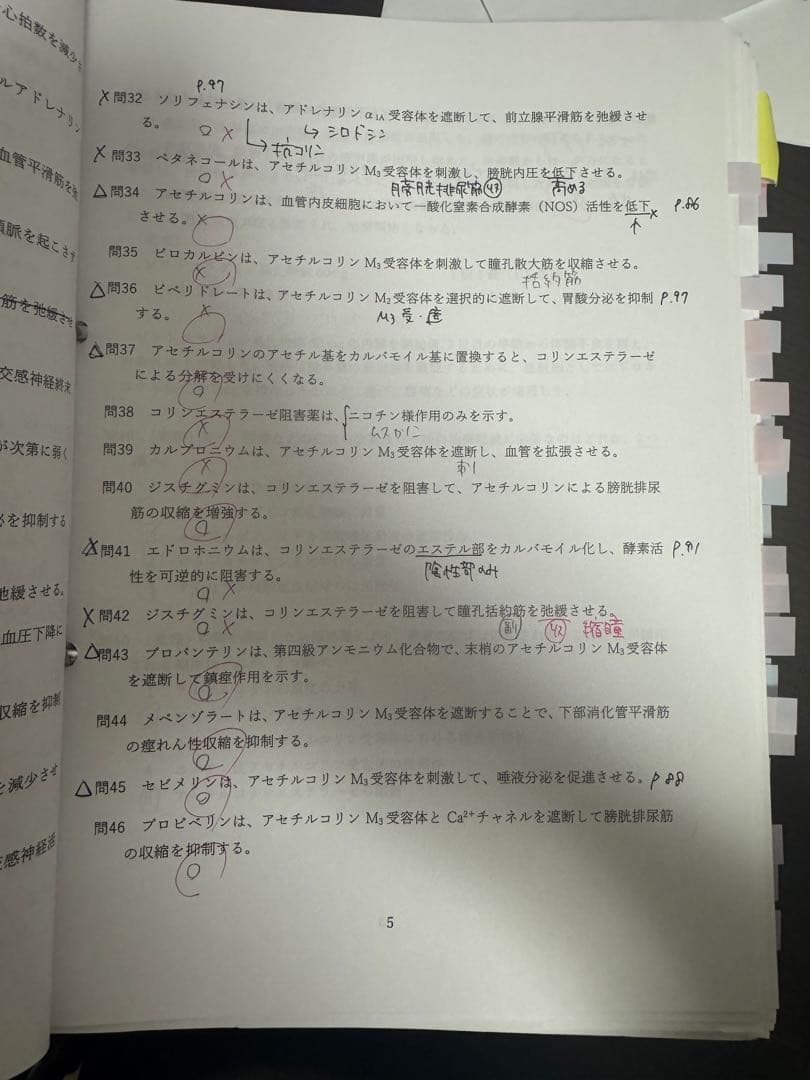 心拍数を減少さ
ルアドレナリン
血管平滑筋を弛
頻脈を起こさす
筋を弛緩させ
交感神経終末
が次第に弱く
を抑制する
弛緩させる。
血圧下降に
収縮を抑制
を減少させ
交感神経活
P.97
×問32 ソリフェナシンは、アドレナリンα1A受容体を遮断して、前立腺平滑筋を弛緩させ
る。 ○ × → 抗コリン → シロドシン
×問33 ベタネコールは、アセチルコリン M₃受容体を刺激し、膀胱内圧を低下させる。
○ × 膀胱排尿筋 収 高める
△問34 アセチルコリンは、血管内皮細胞において一酸化窒素合成酵素（NOS）活性を低下× P.86
させる。× ↑
問35 ピロカルピンは、アセチルコリン M₃受容体を刺激して瞳孔散大筋を収縮させる。
× 括約筋
△問36 ピペリドレートは、アセチルコリン M₂受容体を選択的に遮断して、胃酸分泌を抑制 P.97
する。× M₃受・遮
△問37 アセチルコリンのアセチル基をカルバモイル基に置換すると、コリンエステラーゼ
による分解を受けにくくなる。
○
問38 コリンエステラーゼ阻害薬は、ニコチン様作用のみを示す。
× ムスカリニ
問39 カルプロニウムは、アセチルコリン M₃受容体を遮断し、血管を拡張させる。
× 刺
問40 ジスチグミンは、コリンエステラーゼを阻害して、アセチルコリンによる膀胱排尿
筋の収縮を増強する。
○
×問41 エドロホニウムは、コリンエステラーゼのエステル部をカルバモイル化し、酵素活 P.91
性を可逆的に阻害する。 陰性部のみ
○ ×
×問42 ジスチグミンは、コリンエステラーゼを阻害して瞳孔括約筋を弛緩させる。
○ × 副 収 縮瞳
△問43 プロパンテリンは、第四級アンモニウム化合物で、末梢のアセチルコリン M₃受容体
を遮断して鎮痙作用を示す。
○
問44 メペンゾラートは、アセチルコリン M₃受容体を遮断することで、下部消化管平滑筋
の痙れん性収縮を抑制する。
○
△問45 セビメリンは、アセチルコリン M₃受容体を刺激して、唾液分泌を促進させる。 P88
○
問46 プロピベリンは、アセチルコリン M₃受容体と Ca²⁺チャネルを遮断して膀胱排尿筋
の収縮を抑制する。
○
5